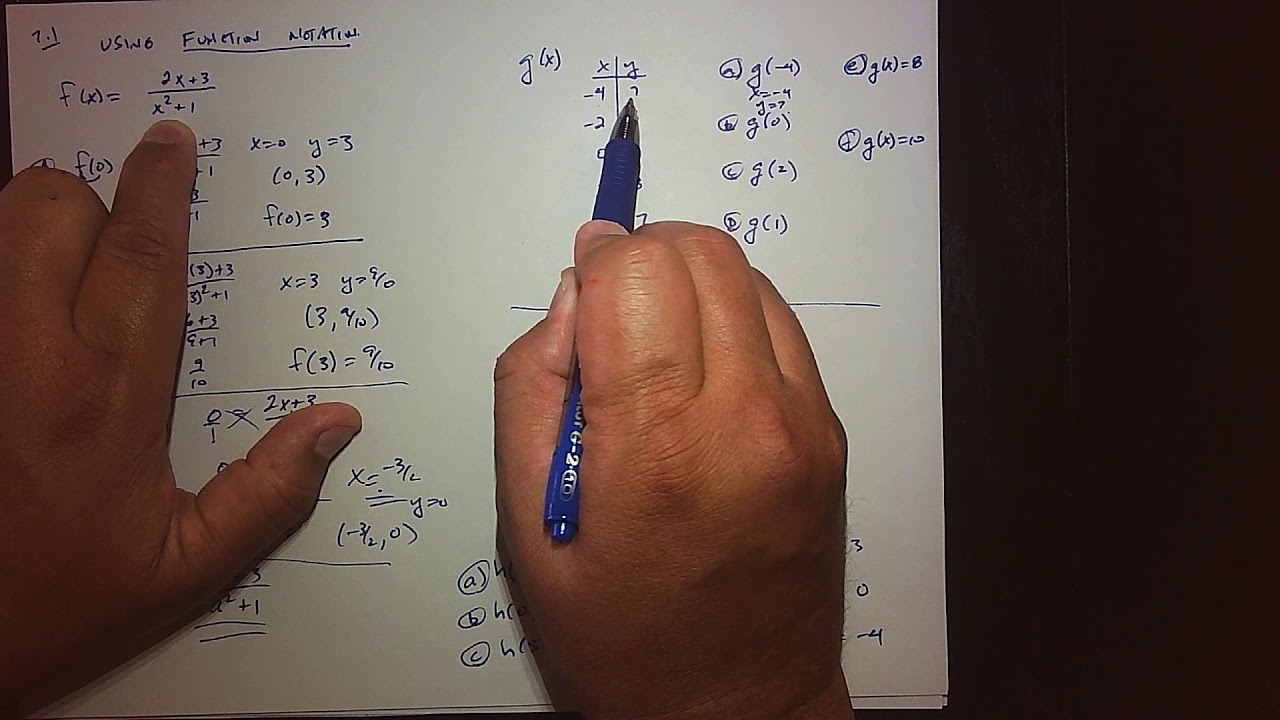 7.1 USING FUNCTION NOTATION
f(x)= 2x+3
x²+1
f(0) +3 x=0 y=3
+1 (0,3)
3
+1 f(0)=3
(3)+3 x=3 y=9/10
3)²+1
6+3 (3, 9/10)
9+1
9 f(3) = 9/10
10
0 2x+3
1
0
x=-3/2
y=0
(-3/2, 0)
3
a²+1
g(x) x y
-4 7
-2
0
8
7
a) g(-4)
x=-4
y=7
b) g(0)
c) g(2)
D) g(1)
e) g(x)=8
f) g(x)=10
a) h(
b) h(0
c) h(
3
0
= -4
G-2 (10